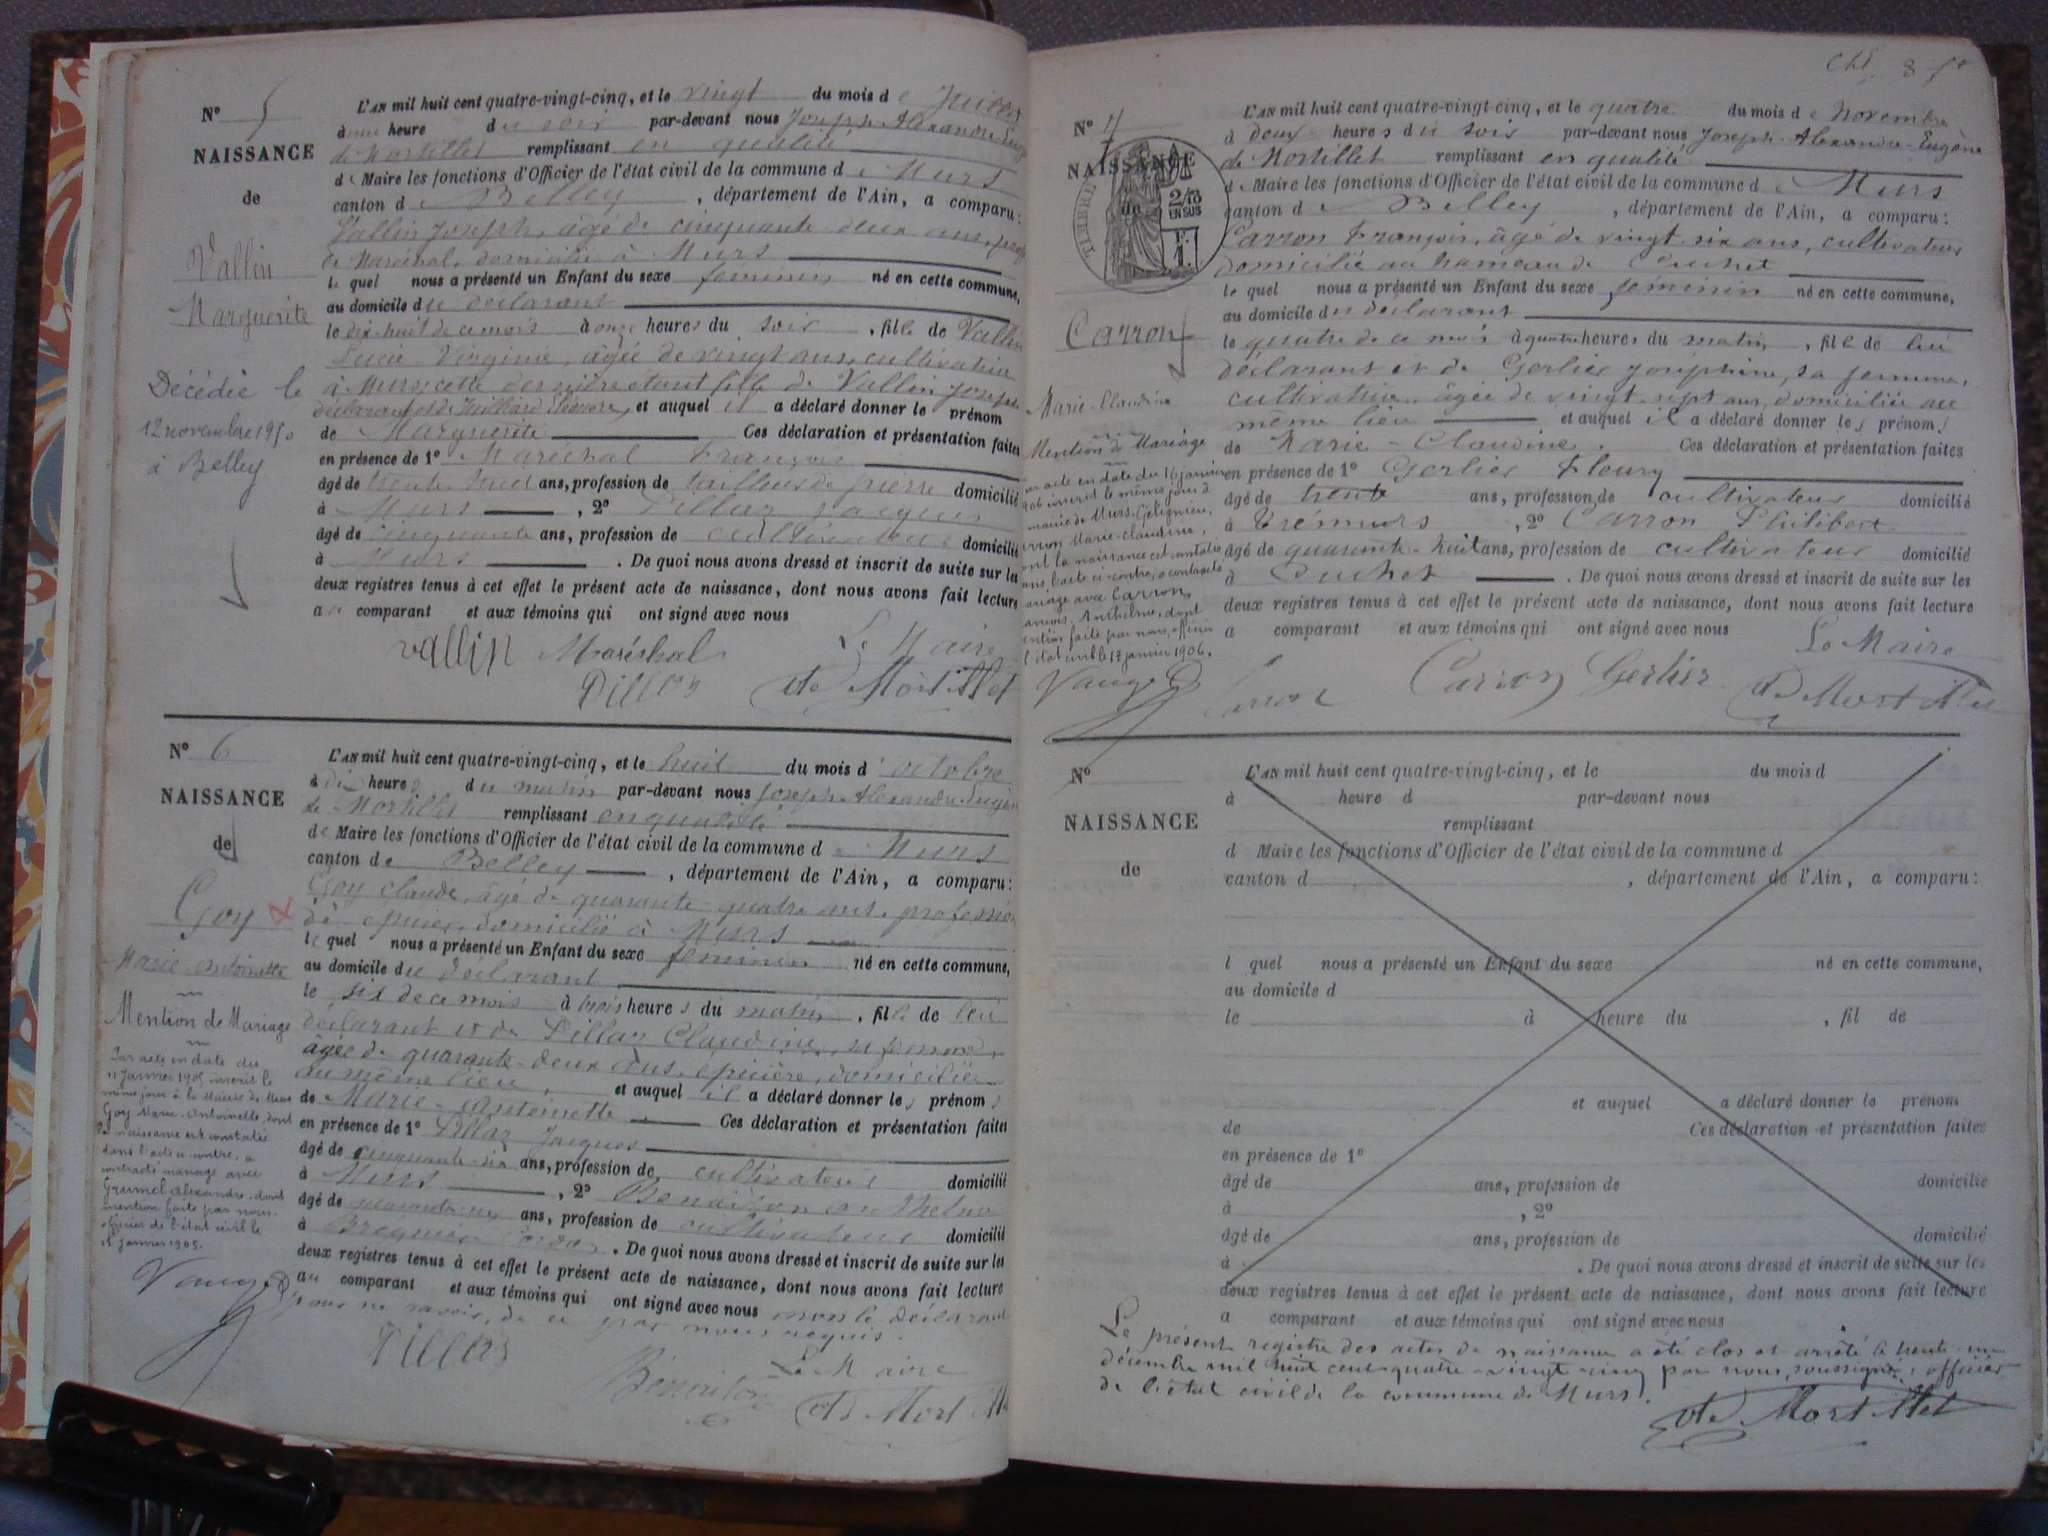 Nº 5
NAISSANCE
de
Vallin
Marguerite
Décédée le
12 novembre 1950
à Belley
L'AN mil huit cent quatre-vingt-cinq, et le vingt du mois de Juillet
à une heure du soir par-devant nous Joseph-Alexandre-Eugè
de Mortillet remplissant en qualité
de Maire les fonctions d'Officier de l'état civil de la commune de Murs
canton de Belley, département de l'Ain, a comparu:
Vallin Joseph, âgé de cinquante deux ans,
de Maréchal, domicilié à Murs
lequel nous a présenté un Enfant du sexe feminin né en cette commune,
au domicile du déclarant
le dix-huit de ce mois à onze heures du soir, fille de Vallin
Lucie Virginie, âgée de vingt ans, cultivatrice
à Murs, cette dernière étant fille de Vallin Joseph
déclarant et de et auquel il a déclaré donner le prénom
de Marguerite Ces déclaration et présentation faites
en présence de 1º Maréchal François
âgé de trente ans, profession de tailleur de pierre domicilié
à Murs, 2º Pillaz Jacques
âgé de cinquante ans, profession de cultivateur domicilié
à Murs. De quoi nous avons dressé et inscrit de suite sur les
deux registres tenus à cet effet le présent acte de naissance, dont nous avons fait lecture
au comparant et aux témoins qui ont signé avec nous
Le Maire
Vallin Maréchal
Pillaz A de Mortillet
Nº 6
NAISSANCE
de
Goy
Marie-Antoinette
Mention de Mariage
Par acte en date du
11 janvier 1905 inscrit le
même jour à la Mairie de Murs
Goy Marie-Antoinette, dont
la naissance est constatée
dans l'acte ci-contre, a
contracté mariage avec
Grumel Alexandre, dont
mention faite par nous,
officier de l'état civil le
janvier 1905.
L'AN mil huit cent quatre-vingt-cinq, et le huit du mois d'octobre
à dix heures du matin par-devant nous Joseph-Alexandre-Eugèn
de Mortillet remplissant en qualité
de Maire les fonctions d'Officier de l'état civil de la commune de Murs
canton de Belley, département de l'Ain, a comparu:
Goy Claude, âgé de quarante-quatre ans, profession
de épicier, domicilié à Murs
lequel nous a présenté un Enfant du sexe feminin né en cette commune,
au domicile du déclarant
le six de ce mois à trois heures du matin, fille de lui
déclarant et de Pillaz Claudine, sa femme,
âgée de quarante-deux ans, épicière, domiciliée
au même lieu, et auquel il a déclaré donner les prénoms
de Marie-Antoinette Ces déclaration et présentation faites
en présence de 1º Pillaz Jacques
âgé de cinquante-six ans, profession de cultivateur domicilié
à Murs, 2º Benoiton Anthelme
âgé de ans, profession de cultivateur domicilié
à Bregnier Cordon. De quoi nous avons dressé et inscrit de suite sur les
deux registres tenus à cet effet le présent acte de naissance, dont nous avons fait lecture
au comparant et aux témoins qui ont signé avec nous mons le déclarant
pour ne savoir, de ce par nous requis.
Pillaz
Le Maire
Benoiton A de Mortillet
Nº 7
NAISSANCE
de
TIMBRE
2/10
EN SUS
F.
1.
Carron
Marie-Claudine
Mention de Mariage
par acte en date du 16 janvier
1906 inscrit le même jour à
mairie de Murs-Gélignieu,
arron Marie-Claudine,
ont la naissance est constatée
ans l'acte ci-contre, a contracté
ariage avec Carron
Anthelme, dont
ention faite par nous, officier
l'état civil le 17 janvier 1906.
L'AN mil huit cent quatre-vingt-cinq, et le quatre du mois de Novembre
à deux heures du soir par-devant nous Joseph-Alexandre-Eugène
de Mortillet remplissant en qualité
de Maire les fonctions d'Officier de l'état civil de la commune de Murs
canton de Belley, département de l'Ain, a comparu:
Carron François, âgé de vingt-six ans, cultivateur
domicilié au hameau de Cuchet
lequel nous a présenté un Enfant du sexe feminin né en cette commune,
au domicile du déclarant
le quatre de ce mois à quatre heures du matin, fille de lui
déclarant et de Gerlier Joséphine, sa femme,
cultivatrice, âgée de vingt-sept ans, domiciliée au
même lieu et auquel il a déclaré donner les prénoms
de Marie-Claudine. Ces déclaration et présentation faites
en présence de 1º Gerlier Fleury
âgé de trente ans, profession de cultivateur domicilié
à Trémurs, 2º Carron Philibert
âgé de quarante-huit ans, profession de cultivateur domicilié
à Cuchet. De quoi nous avons dressé et inscrit de suite sur les
deux registres tenus à cet effet le présent acte de naissance, dont nous avons fait lecture
a comparant et aux témoins qui ont signé avec nous
Le Maire
Carron Carron Gerlier A de Mortillet
Nº
NAISSANCE
de
L'AN mil huit cent quatre-vingt-cinq, et le du mois d
à heure d par-devant nous
remplissant
d Maire les fonctions d'Officier de l'état civil de la commune d
canton d , département de l'Ain, a comparu:
l quel nous a présenté un Enfant du sexe né en cette commune,
au domicile d
le à heure du , fil de
et auquel a déclaré donner le prénom
de Ces déclaration et présentation faites
en présence de 1º
âgé de ans, profession de domicilié
à , 2º
âgé de ans, profession de domicilié
à . De quoi nous avons dressé et inscrit de suite sur les
deux registres tenus à cet effet le présent acte de naissance, dont nous avons fait lecture
a comparant et aux témoins qui ont signé avec nous
Le présent registre des actes de naissance a été clos et arrêté le trente-un
décembre mil huit cent quatre-vingt-cinq par nous, soussigné, officier
de l'état civil de la commune de Murs.
A de Mortillet